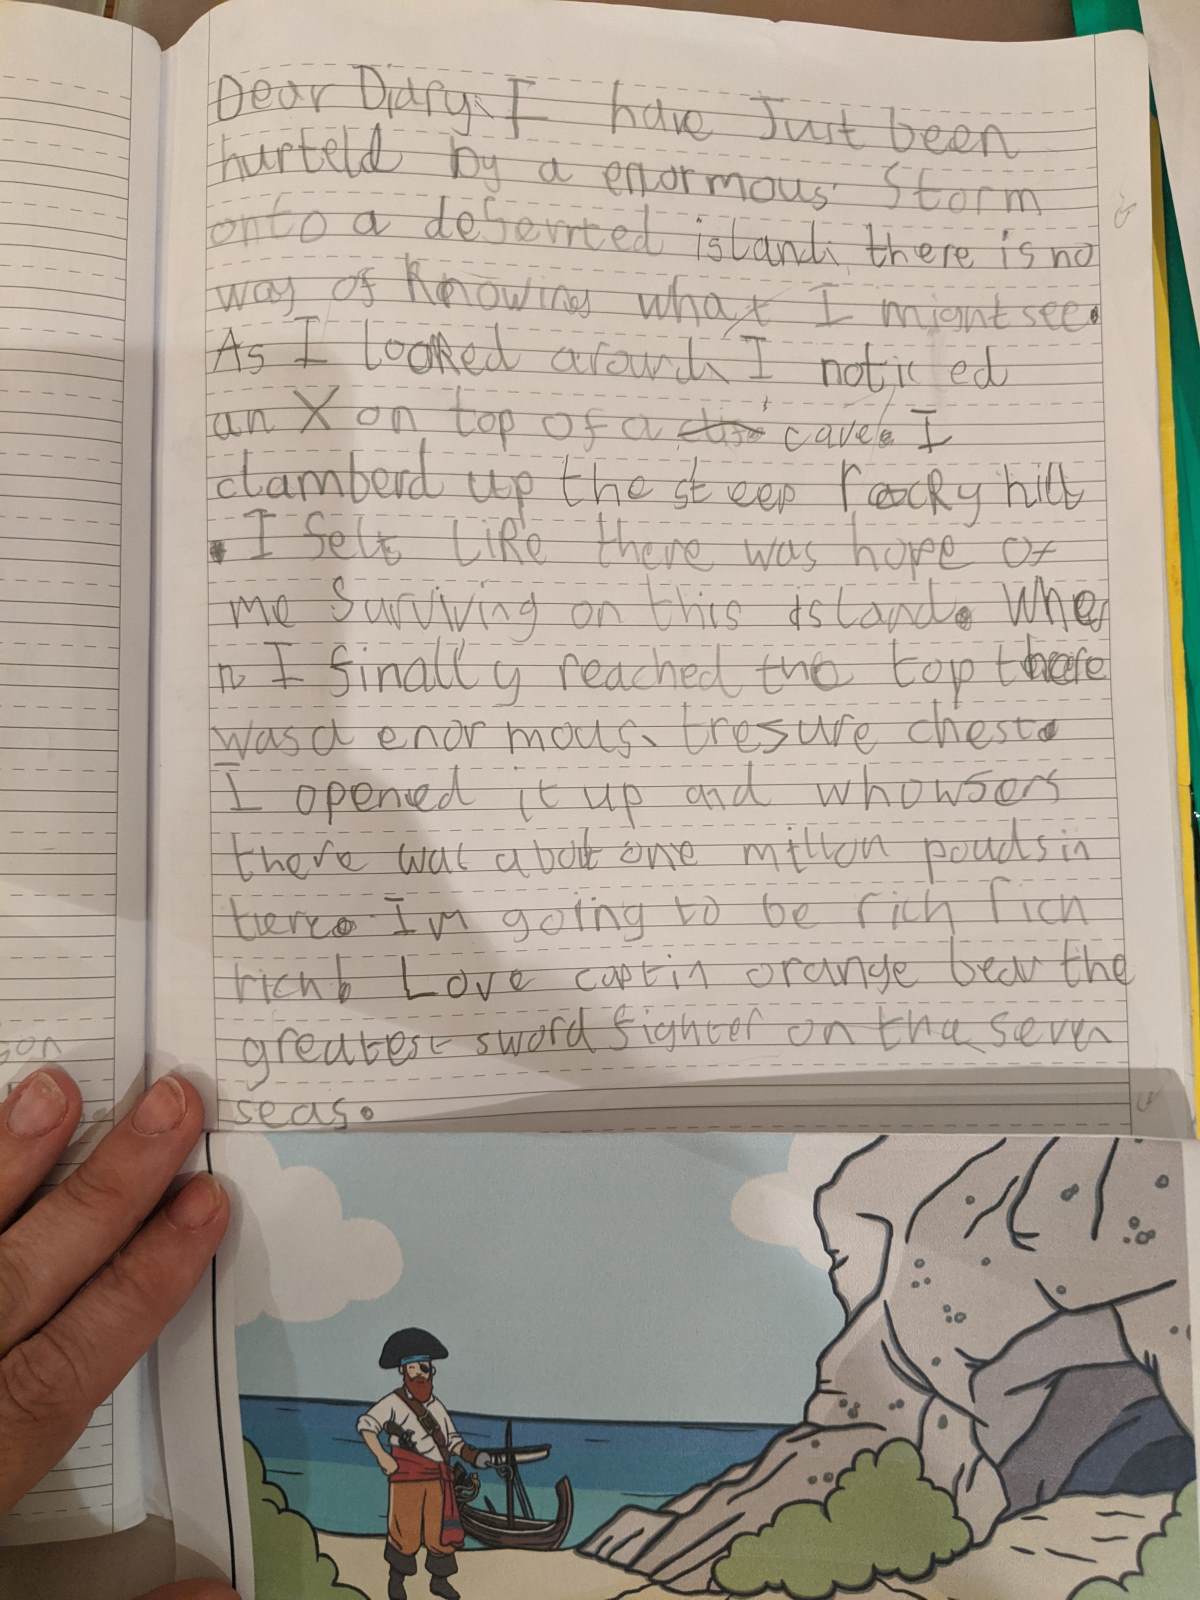 Dear Diary, I have Just been
hurteld by a enormous Storm
onto a deserrted island, there is no
way of knowing what I might see.
As I looked around, I noticed
an X on top of a cave. I
clamberd up the steep rocky hill
. I felt like there was hope of
me surviving on this island. Whe
n I finally reached the top there
was a enormous, tresure chest.
I opened it up and whowsers
there was about one millon pouds in
tere. Im going to be rich rich
rich! Love captin orange bear the
greatest sword fighter on the seven
seas.
son